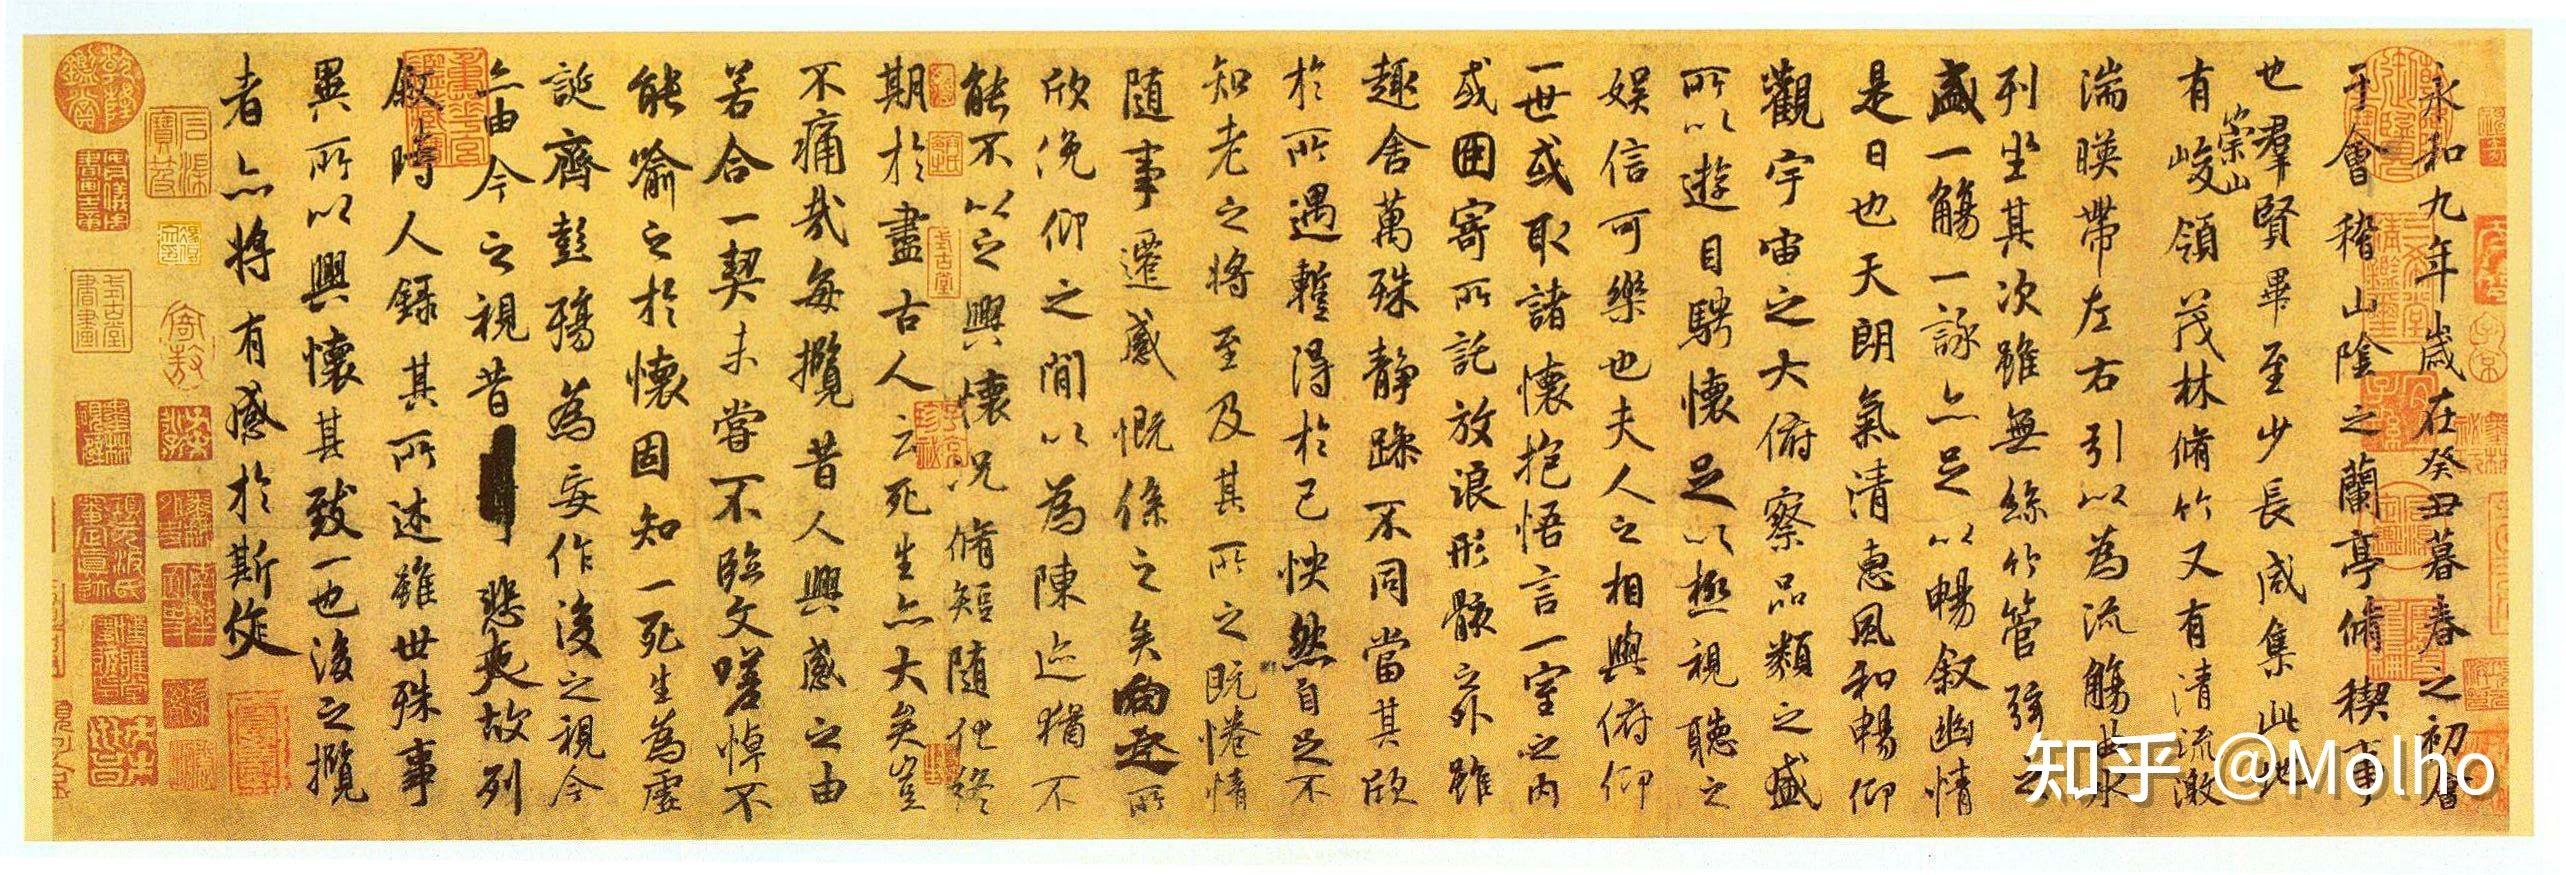 永和九年歲在癸丑暮春之初會
于會稽山陰之蘭亭脩稧事
也羣賢畢至少長咸集此地
有崇山峻領茂林脩竹又有清流激
湍暎帶左右引以為流觴曲水
列坐其次雖無絲竹管弦之
盛一觴一詠亦足以暢敘幽情
是日也天朗氣清惠風和暢仰
觀宇宙之大俯察品類之盛
所以遊目騁懷足以極視聽之
娛信可樂也夫人之相與俯仰
一世或取諸懷抱悟言一室之內
或因寄所託放浪形骸之外雖
趣舍萬殊靜躁不同當其欣
於所遇蹔得於己怏然自足不
知老之將至及其所之既惓情
隨事遷感慨係之矣向之所
欣俛仰之閒以為陳迹猶不
能不以之興懷況脩短隨化終
期於盡古人云死生亦大矣豈
不痛哉每攬昔人興感之由
若合一契未嘗不臨文嗟悼不
能喻之於懷固知一死生為虛
誕齊彭殤為妄作後之視今
亦由今之視昔悲夫故列
敘時人錄其所述雖世殊事
異所以興懷其致一也後之攬
者亦將有感於斯文
知乎 @Molho